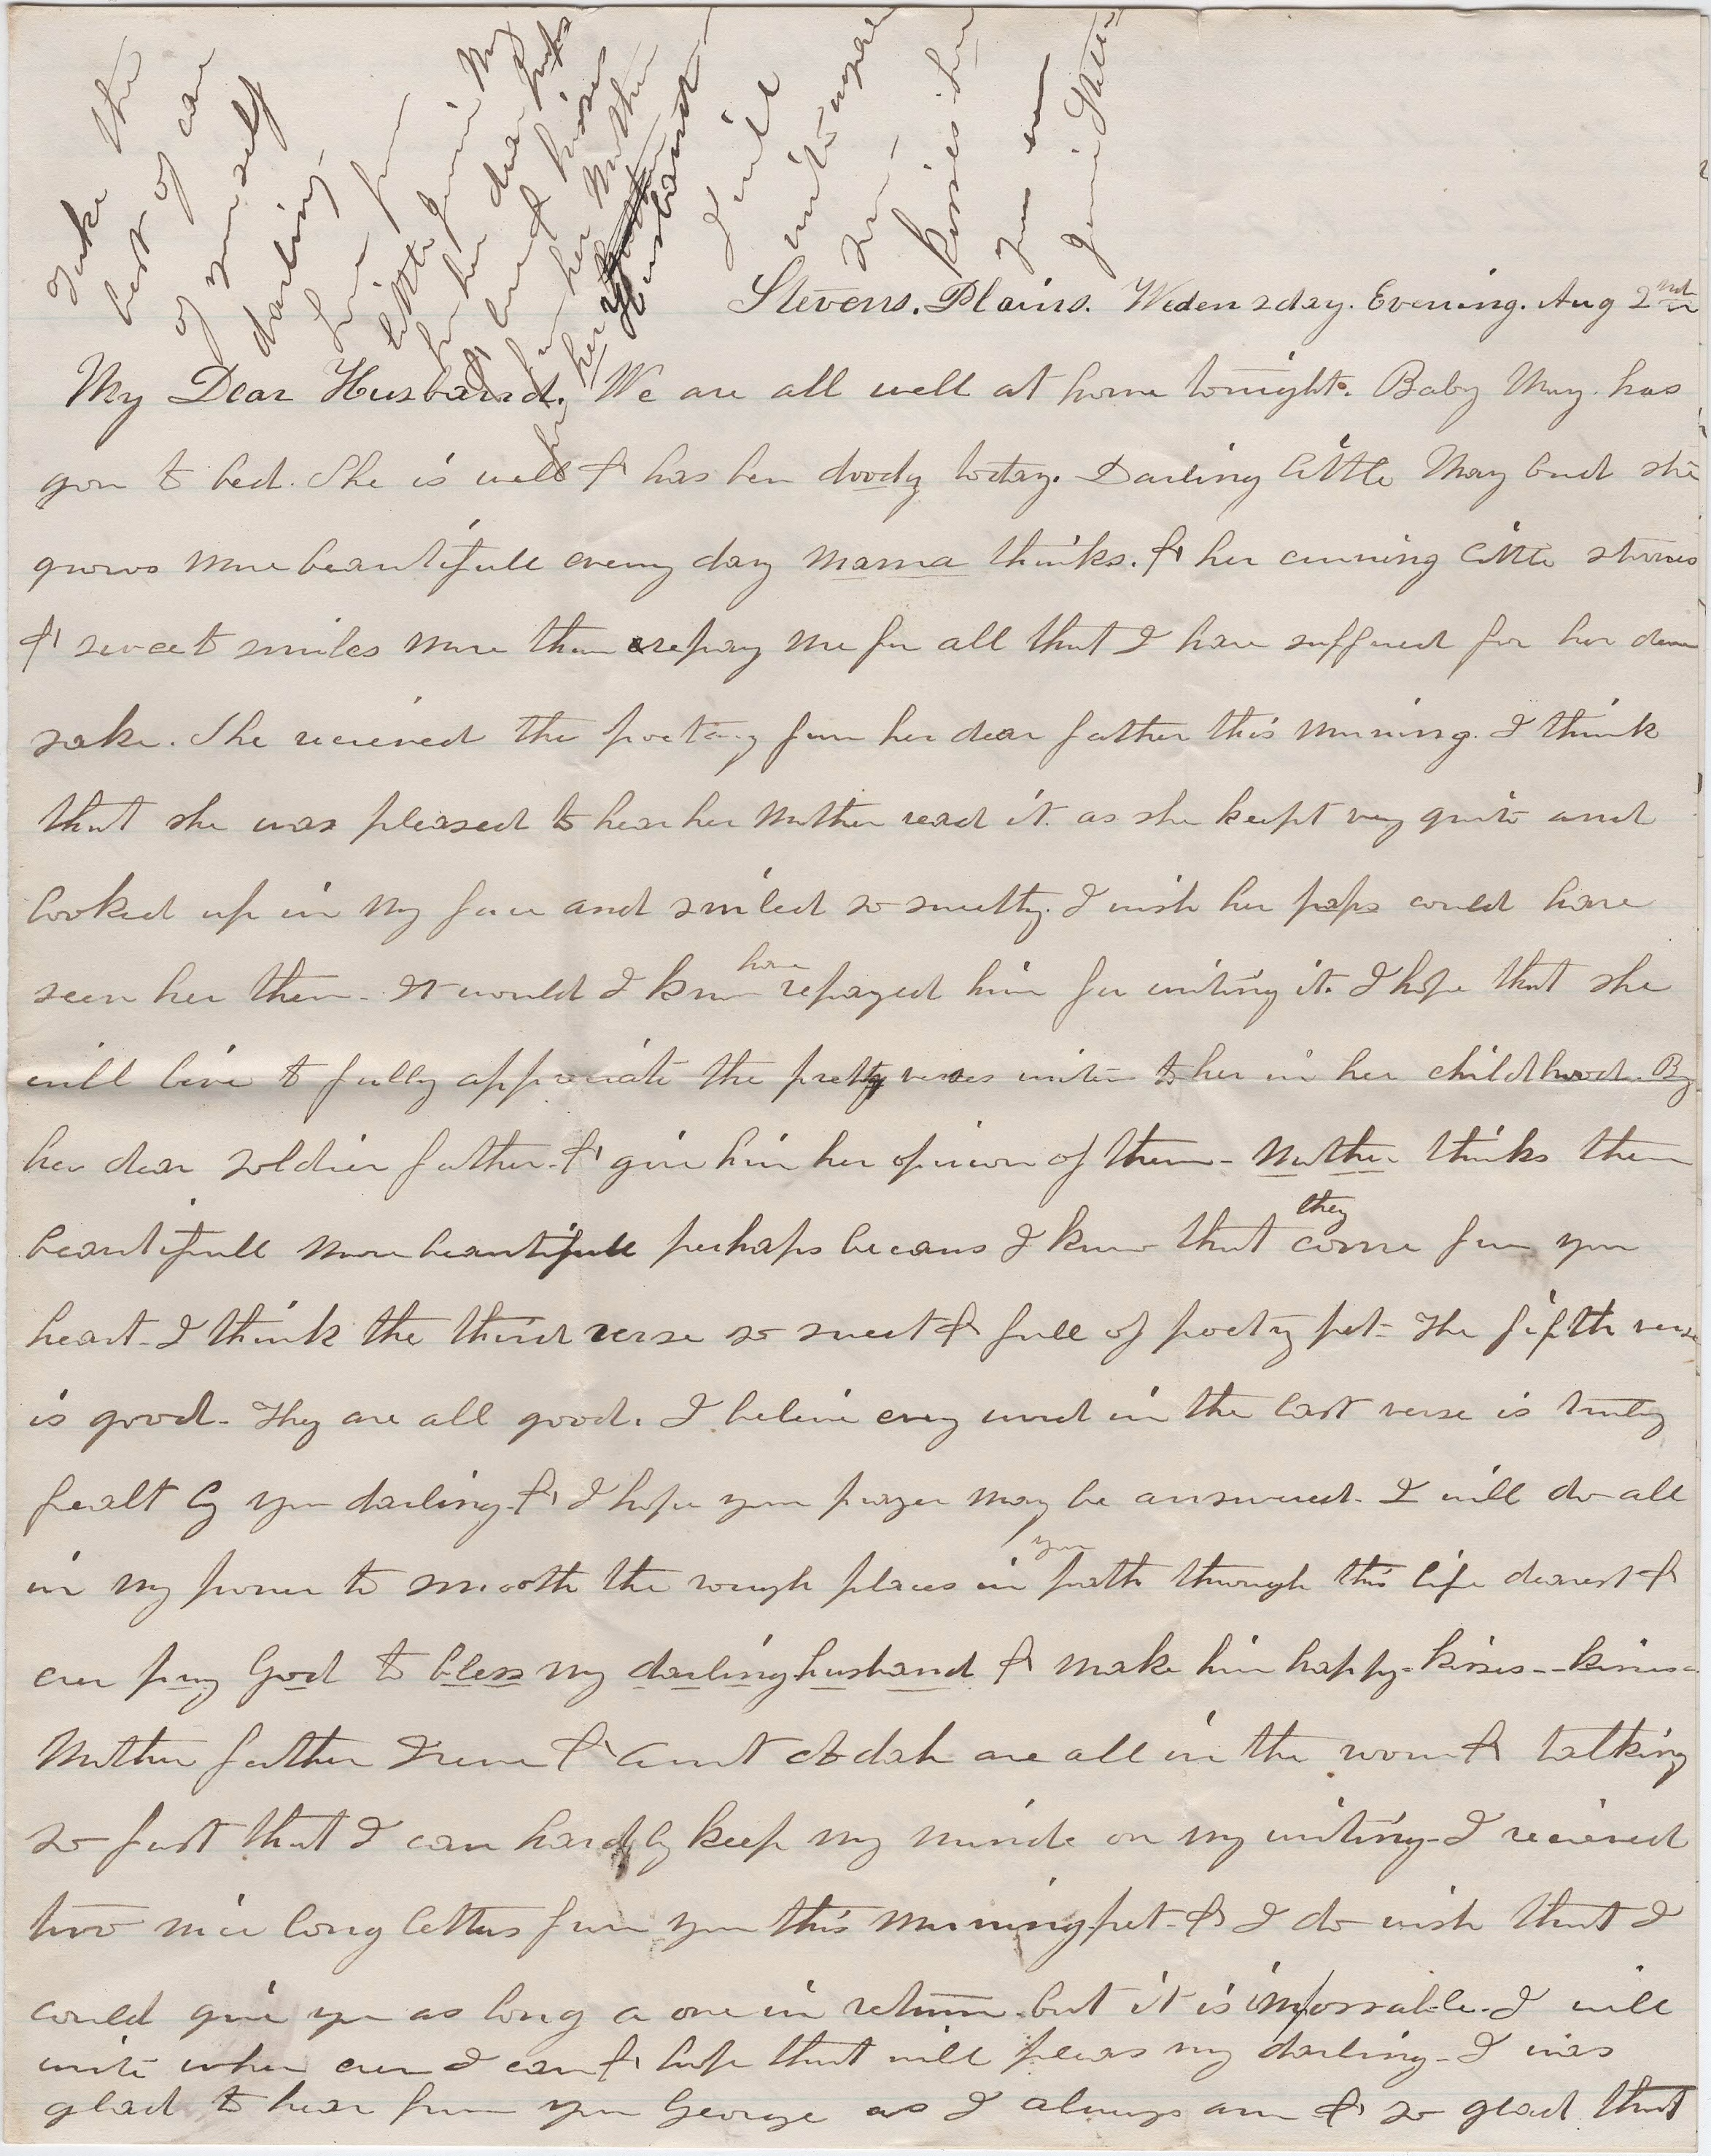 Take the
best of care
of yourself
darling.
love from
little Jennie My
for her dear papa
bud kisses
from her Mother
for her husband
I will
write again
kisses for
you
Jennie
Stevens. Plains. Wedensday. Evening. Aug 2nd
My Dear Husband. We are all well at home tonight. Baby May has
gon to bed. She is well & has ben doody today. Darling little May bud she
grows more beautifull every day mama thinks. & her cunning little
& sweet smiles more than repay me for all that I have suffered for her dear
sake. She recieved the poetry from her dear father this morning. I think
that she was pleased to hear her Mother read it as she keept very quite and
looked up in my face and smiled so sweetly. I wish her papa could have
seen her then. It would I know have repayed him for writing it. I hope that she
will live to fully appreciate the pretty verses writen to her in her childhood. By
her dear soldier father. & give him her opinion of them - Mother thinks them
beautifull more beautifull perhaps becaus I know that they come from your
heart - I think the third verse so sweet & full of poetry pet - The fifth verse
is good - They are all good. I believe every word in the last verse is truley
fealt by you darling - & I hope your prayer may be answered - I will do all
in my power to smooth the rough places in your path through this life dearest &
ever pray God to bless my darling husband & make him happy - kisses -- kisses -
Mother father Irene & Aunt Abdah are all in the room & talking
so fast that I can hardly keep my minde on my writing - I recieved
two nice long letters from you this morning pet - & I do wish that I
could give you as long a one in return but it is impossable - I will
write when ever I can & hope that will pleas my darling - I was
glad to hear from you George as I always am & so glad that